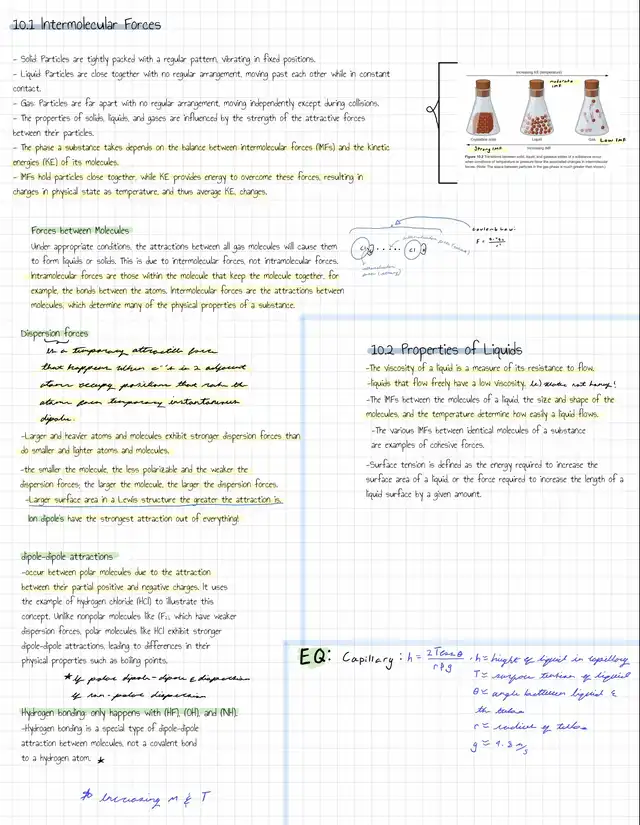 10.1 Intermolecular Forces
- Solid: Particles are tightly packed with a regular pattern, vibrating in fixed positions.
- Liquid: Particles are close together with no regular arrangement, moving past each other while in constant
contact.
- Gas: Particles are far apart with no regular arrangement, moving independently except during collisions.
- The properties of solids, liquids, and gases are influenced by the strength of the attractive forces
between their particles.
- The phase a substance takes depends on the balance between intermolecular forces (IMFs) and the kinetic
energies (KE) of its molecules.
- IMFs hold particles close together, while KE provides energy to overcome these forces, resulting in
changes in physical state as temperature, and thus average KE, changes.
Increasing KE (temperature)
moderate
IMF
Crystalline solid
Liquid
Gas
Strong IMF
Low IMF
Increasing IMF
Forces between Molecules
Under appropriate conditions, the attractions between all gas molecules will cause them
to form liquids or solids. This is due to intermolecular forces, not intramolecular forces.
Intramolecular forces are those within the molecule that keep the molecule together, for
example, the bonds between the atoms. Intermolecular forces are the attractions between
molecules, which determine many of the physical properties of a substance.
Cl
Cl
F =
Dispersion forces
is a temporary attractive force
that happens when e-'s in 2 adjacent
atoms occupy positions that make the
atoms form temporary instantaneous
dipoles.
-Larger and heavier atoms and molecules exhibit stronger dispersion forces than
do smaller and lighter atoms and molecules.
-the smaller the molecule, the less polarizable and the weaker the
dispersion forces; the larger the molecule, the larger the dispersion forces.
-Larger surface area in a Lewis structure the greater the attraction is.
Ion dipole's have the strongest attraction out of everything!
dipole-dipole attractions
-occur between polar molecules due to the attraction
between their partial positive and negative charges. It uses
the example of hydrogen chloride (HCl) to illustrate this
concept. Unlike nonpolar molecules like (F₂), which have weaker
dispersion forces, polar molecules like HCl exhibit stronger
dipole-dipole attractions, leading to differences in their
physical properties such as boiling points.
* if polar dipole-dipole & dispersion
if non-polar dispersion
Hydrogen bonding: only happens with (HF), (OH), and (NH).
-Hydrogen bonding is a special type of dipole-dipole
attraction between molecules, not a covalent bond
to a hydrogen atom. *
* Increasing m & T
10.2 Properties of Liquids
-The viscosity of a liquid is a measure of its resistance to flow.
-liquids that flow freely have a low viscosity.
-The IMFs between the molecules of a liquid, the size and shape of the
molecules, and the temperature determine how easily a liquid flows.
-The various IMFs between identical molecules of a substance
are examples of cohesive forces.
-Surface tension is defined as the energy required to increase the
surface area of a liquid, or the force required to increase the length of a
liquid surface by a given amount.
EQ: Capillary: h = 2Tcosθ / rρg , h = height of liquid in capillary
T = surface tension of liquid
θ = angle between liquid &
the tube
r = radius of tube
g = 9.8 m/s